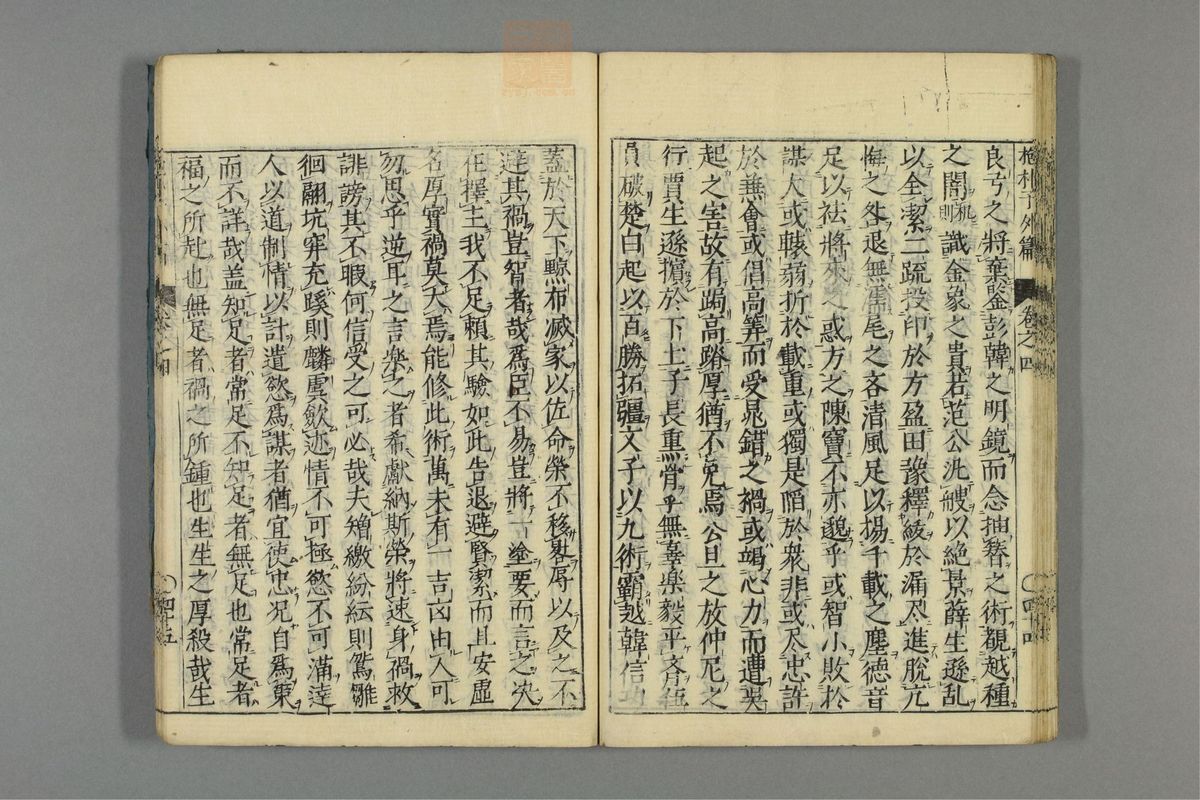 抱朴子外篇 卷之四 〇四十四
良弓之將棄鉴彭韓之明鏡而念抽簪之術覩越種
之闇機則識金象之貴若范公汎艘以絶景薛生遜乱
以全潔二疏投印於方盈田豫釋綬於漏尽進脱亢
悔之咎退無濡尾之吝清風足以揚千載之塵德音
足以祛將來之惑方之陳寶不亦邈乎或智小敗於
謀大或轅弱折於載重或獨是陷於衆非或尽忠訐
於兼會或倡高筭而受晁錯之禍或竭心力而遭吳
起之害故有跼高蹐厚猶不免焉公旦之放仲尼之
行賈生遜擯於下土子長熏骨乎無辜樂毅平齊伍
員破楚白起以百勝拓疆文子以九術霸越韓信功
蓋於天下黥布滅家以佐命榮不移晷辱以及之不
避其禍豈智者哉爲臣不易豈將一塗要而言之决
在擇主我不足賴其驗如此告退避賢潔而且安虛
名厚實禍莫大焉能修此術萬未有一吉凶由人可
勿思乎逆耳之言樂之者希獻納斯榮將速身禍救
誹謗其不暇何信受之可必哉夫矰繳紛紜則鴛雛
徊翮坑穽充蹊則麟虞歛迹情不可極慾不可滿達
人以道制情以計遣慾爲謀者猶宜使忠况自爲策
而不詳哉盖知足者常足不知足者無足也常足者
福之所赴也無足者禍之所鍾也生生之厚殺哉生
〇四十五